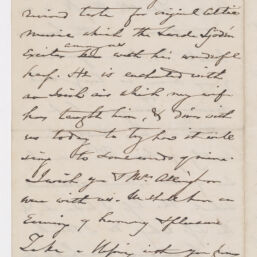 mixed taste for original Celtic
music which the Lord
Exciter among us with his wonderful
harp. He is enchanted with
an Irish air which my wife
has taught him, & dines with
us today to try how it will
sing to some words of mine.
I wish you & Mrs Atkinson
were with us. We shall have an
Evening of harmony & pleasure
Take a